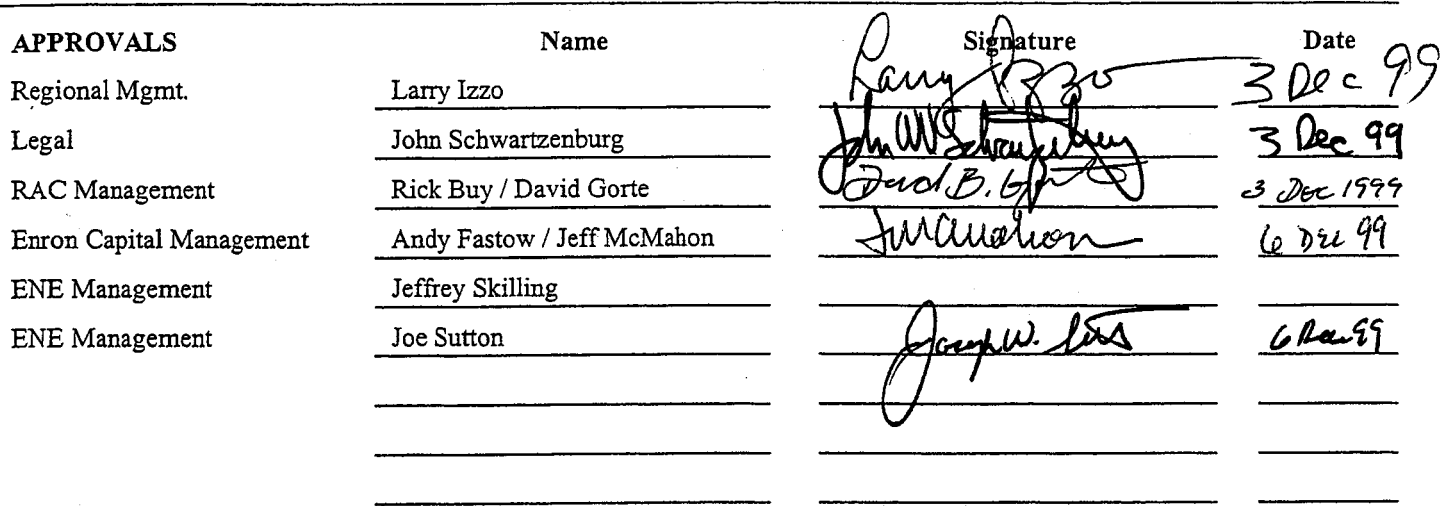 APPROVALS Name Signature Date
Regional Mgmt. Larry Izzo Larry Izzo 3 Dec 99
Legal John Schwartzenburg John W Schwartzenburg 3 Dec 99
RAC Management Rick Buy / David Gorte David B. Gorte 3 Dec 1999
Enron Capital Management Andy Fastow / Jeff McMahon J McMahon 6 Dec 99
ENE Management Jeffrey Skilling
ENE Management Joe Sutton Joseph W. Sutton 6 Dec 99